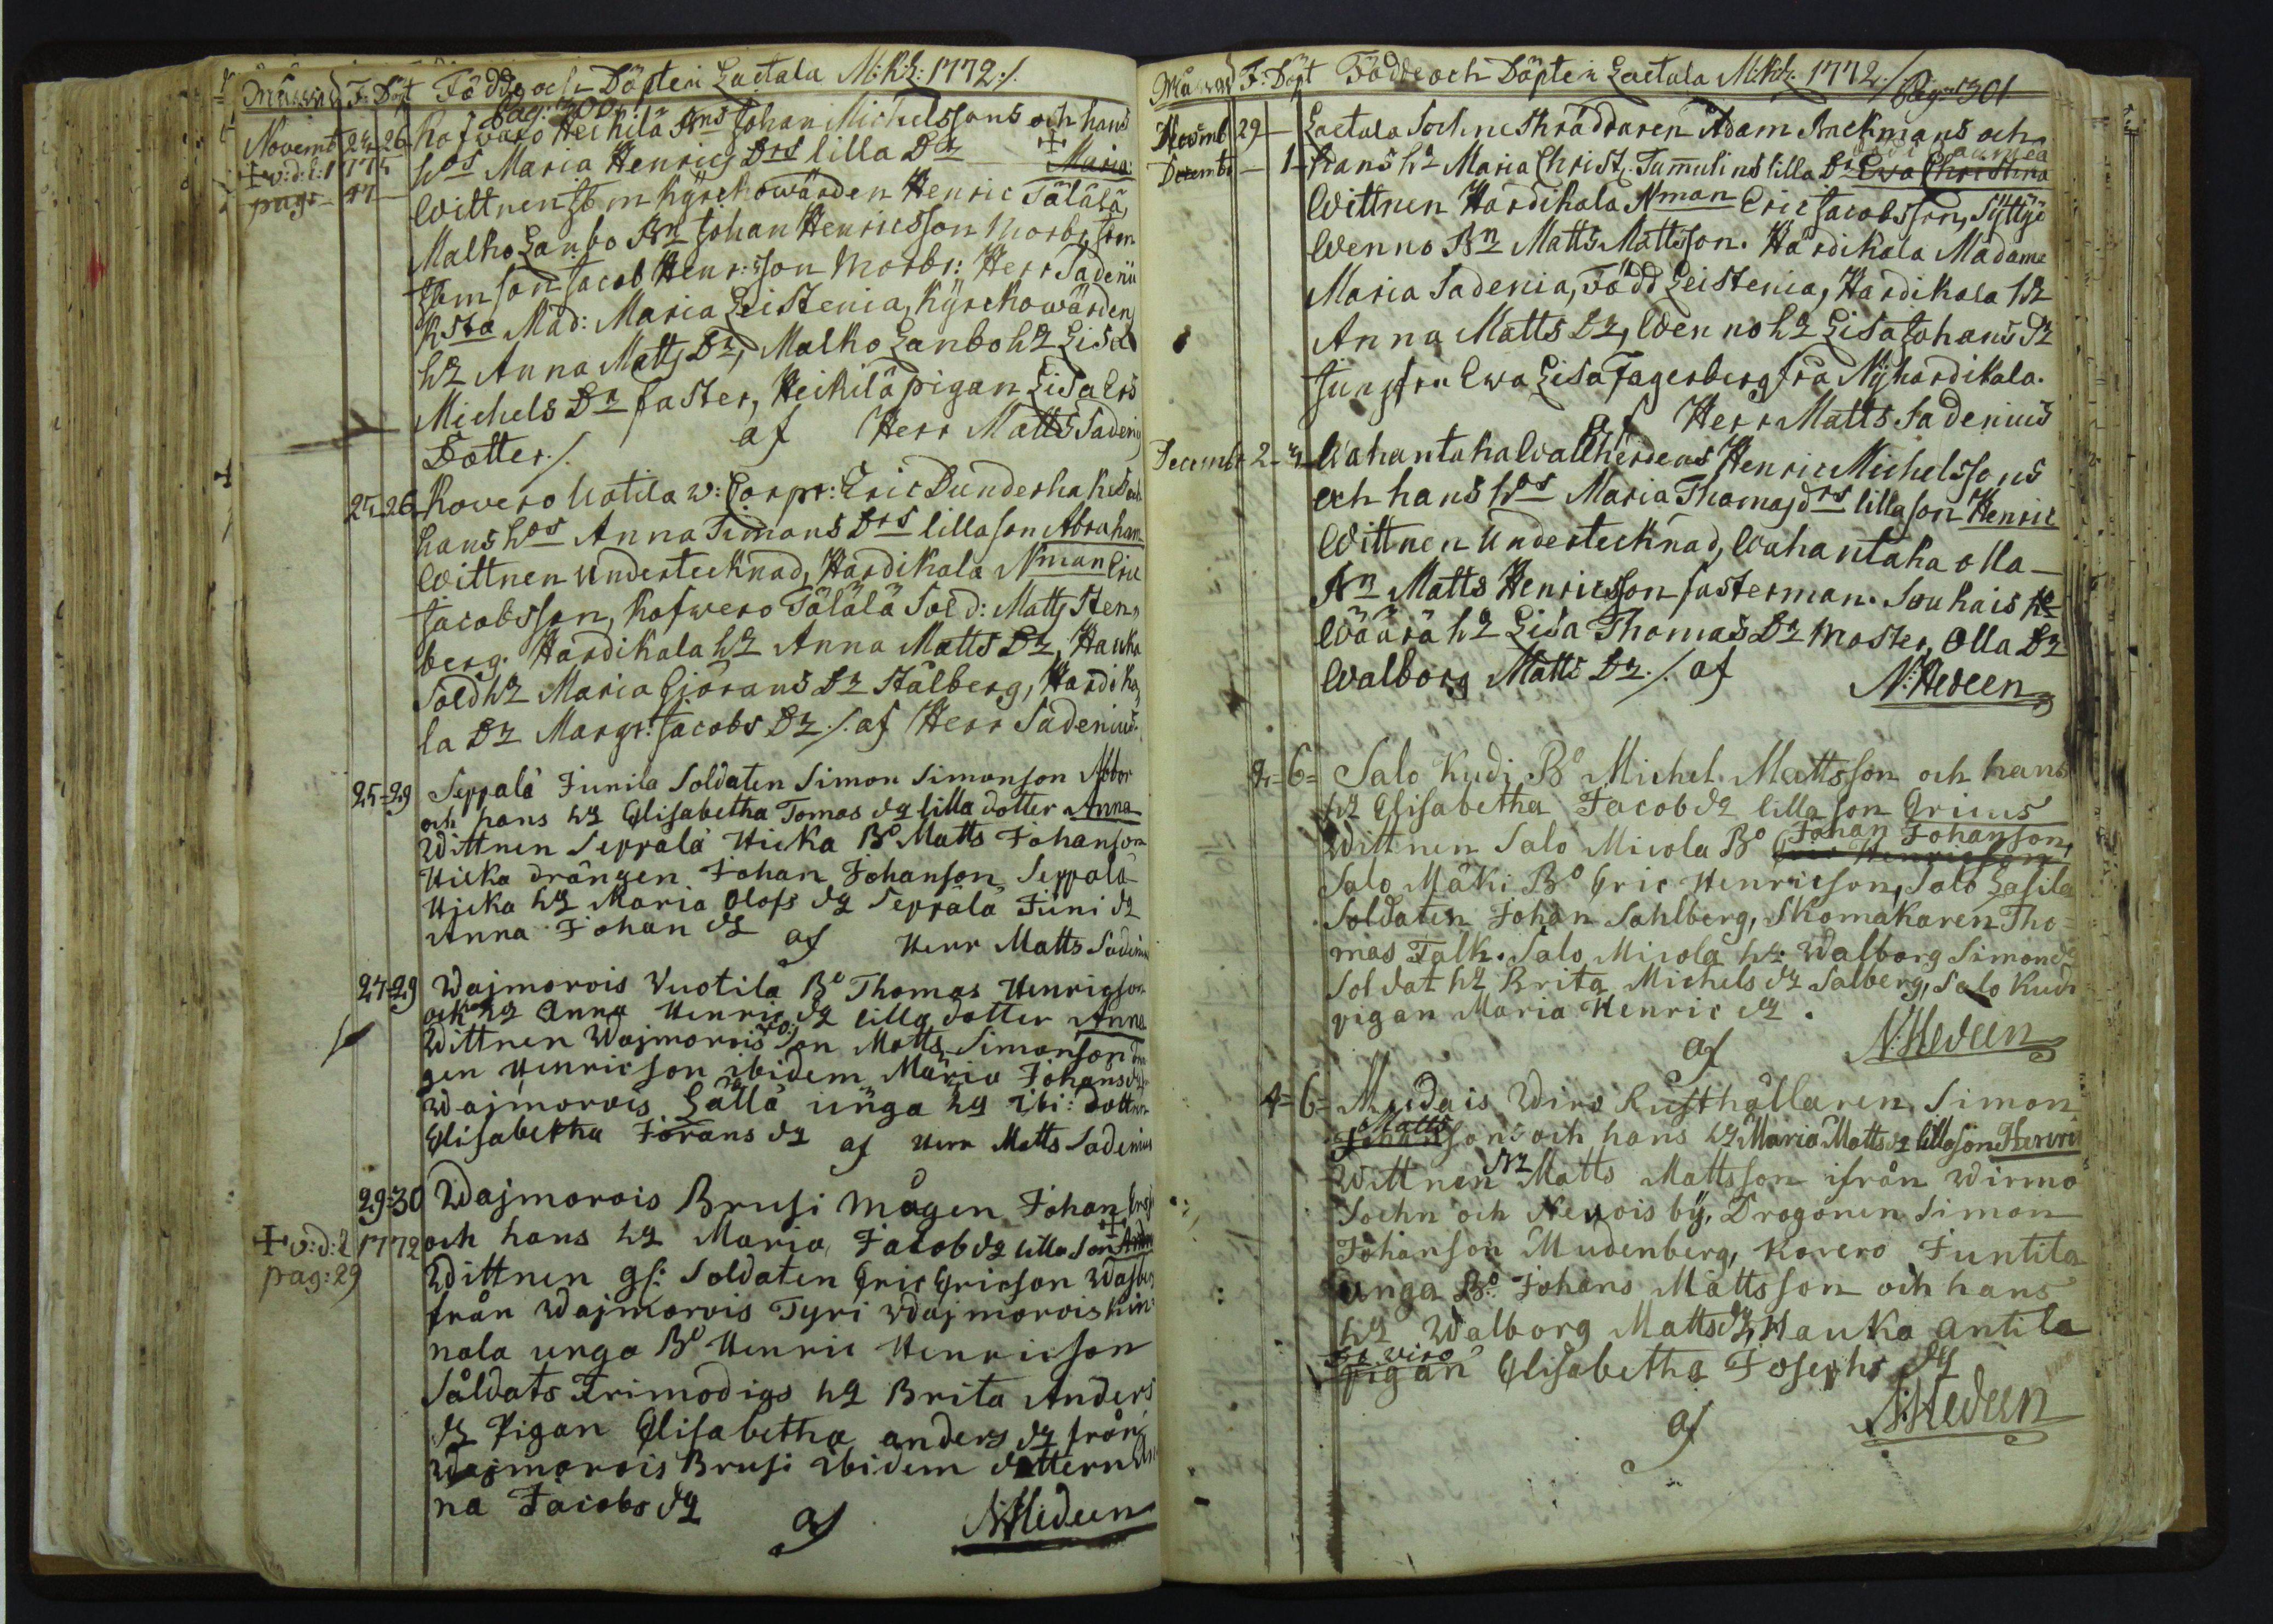 Månad F: Döpt Födde och Döpte i Laetala M:K:L: 1772./.
Pag: 300
Novemb 24 26 Kofwaro Heikilä Bns Johan Michelssons och hans
+ v: d: l: 1775 hos Maria Henrics Drs lilla Dr Maria
pag: 47 Wittnen som Kyrckowärden Henric Tälälä,
Malko Lanbo Bn Johan Henricsson Morbr, som
Jacob Henr:sson Morbr: Herr Sadenii
K sta Mad: Maria Leistenia, Kyrckowärden
hr Anna Matts Dr, Malko Lanbo hr Lisa
Michels Dr faster, Heikilä pigan Lisa Ers
Dotter./. af Herr Matts Sadeni
25 26 Kovero Uotila v: Corpr: Eric Dunderhaks och
hans hos Anna Simons Drs lilla son Abraham
Wittnen Undertecknad, Hardikala Nman Eric
Jacobsson, Kofwero Tälälä Sold: Matts Sten
berg. Hardikala hr Anna Matts Dr, Hauka
Sold hr Maria Görans Dr Stålberg, Hardika
la Dr Margr: Jacobs Dr./. af Herr Sadenius.
25=29 Seppälä Junila Soldaten Simon Simonson Abbor
och hans hr Elisabetha Tomas dr lilla dotter Anna
Wittnen Seppälä Uicka Bo Matts Johanson
Uicka drängen Johan Johanson Seppälä
Uicka hr Maria Olofs dr Seppälä Juni dr
Anna Johan dr af Herr Matts Sadenius
27=29 Wajmorois Vuotila Bo Thomas Henricson
och hr Anna Henric dr lilla dotter Anna
Wittnen Wajmorois Son Matts Simonson
gen Henricson ibidem Maria Johans dr
Wajmorois Lällä unga hr ibi: dottren
Elisabetha Jörans dr af Herr Matts Sadenius
29=30 Wajmorois Brusi Mågen Johan
+ v: d: l 1772 och hans hr Maria Jacob dr lilla Son
pag: 29 Wittnen gf: Soldaten Eric Ericson
från Wajmorois Tyri Wajmorois Kin
nala unga Bo Henric Henricson
Såldats Frimodigs hr Brita Anders
dr Pigan Elisabetha anders dr från
Wajmorois Brusi ibidem dottern
na Jacobs dr af N:Hedeen
Månad F: Döpt Födde och Döpte i Laetala M:K:L: 1772./. Pag: 301
Novemb 29 Laetala Sochne Skräddaren Adam Backmans och
Decembr 1 hans hr Maria Christ. Tammelins lilla Dr Ewa Christina
Wittnen Hardikala Nman Eric Jacobsson, Syttyä
Wenno Bn Matts Mattsson. Hardikala Madame
Maria Sadenia, Född Leistenia, Hardikala hr
Anna Matts Dr, Wenno hr Lisa Johans Dr
Jungfru Ewa Lisa Fagerberg frå Nyhardikala.
af Herr Matts Sadenius
Decembr 2 3 Wahantaka Wallherdens Henric Michelssons
och hans hos Maria Thomas drs lilla son Henric
Wittnen Undertecknad, Wahantaka olla
Bn Matts Henricsson fasterman. Soukais
Wäärä hr Lisa Thomas Dr Moster, Olla Dr
Walborg Matts Dr./. af N:Hedeen
4=6= Salo Kudi Bo Michel Mattsson och hans
hr Elisabetha Jacob dr lilla son Ericus
Wittnen Salo Micola Bo Johan Johanson,
Eric Henricsson
Salo Mäki Bo Eric Henricson, Salo Lasila
Soldaten Johan Sahlberg, Skomakaren Tho=
mas Falk. Salo Micola hr Walborg Simon dr
Soldat hr Brita Michels dr Salberg, Salo Kudi
pigan Maria Henric dr.
af N:Hedeen
4=6= Mudais Wiro Rusthållaren Simon
Matts
Johansons och hans hr Maria Matts dr lilla son Henric
Wittnen Matts Mattsson ifrån Wirmo
Sochn och Nevois by, Dragonen Simon
Johanson Mudenberg, Kovero Juntila
unga Bo: Johans Mattsson och hans
hr Walborg Matts dr, Hauka Antila
viro
pigan Elisabetha Josephs dr
af N:Hedeen